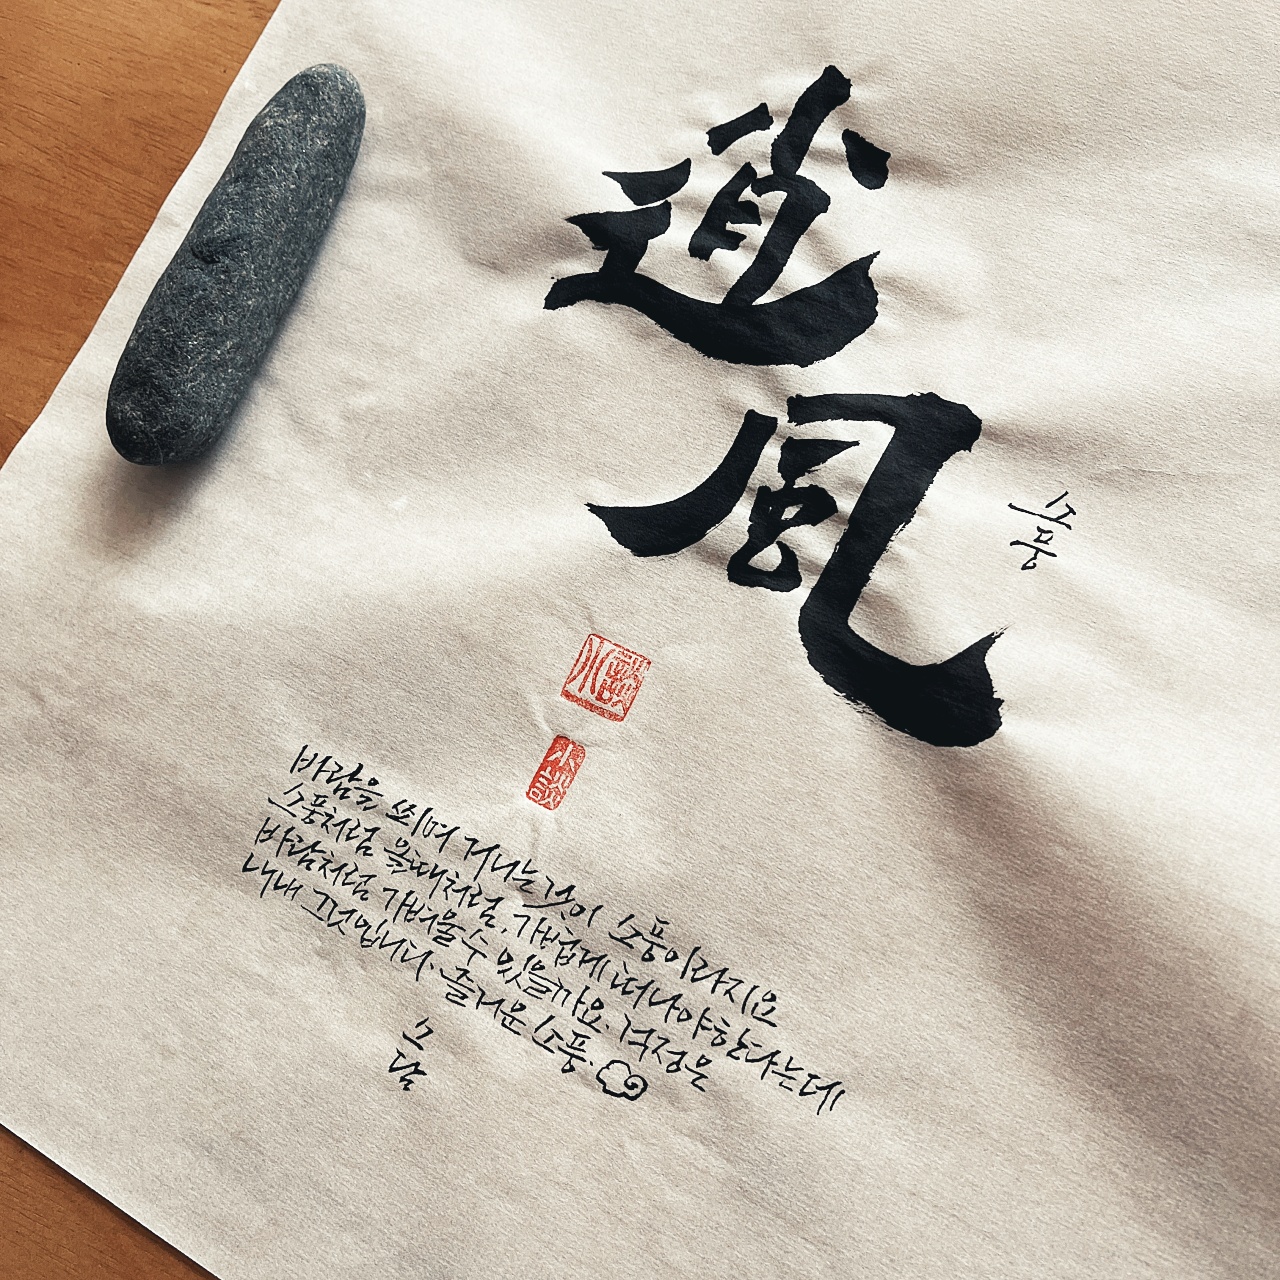 逍風
소풍
小談
小談
바람을 쐬며 거니는 것이 소풍이라지요
소풍처럼 올때처럼, 가볍게 떠나야한다는데
바람처럼 가벼울수 있을까요. 걱정은
내내 그것입니다. 즐거운 소풍.
소담